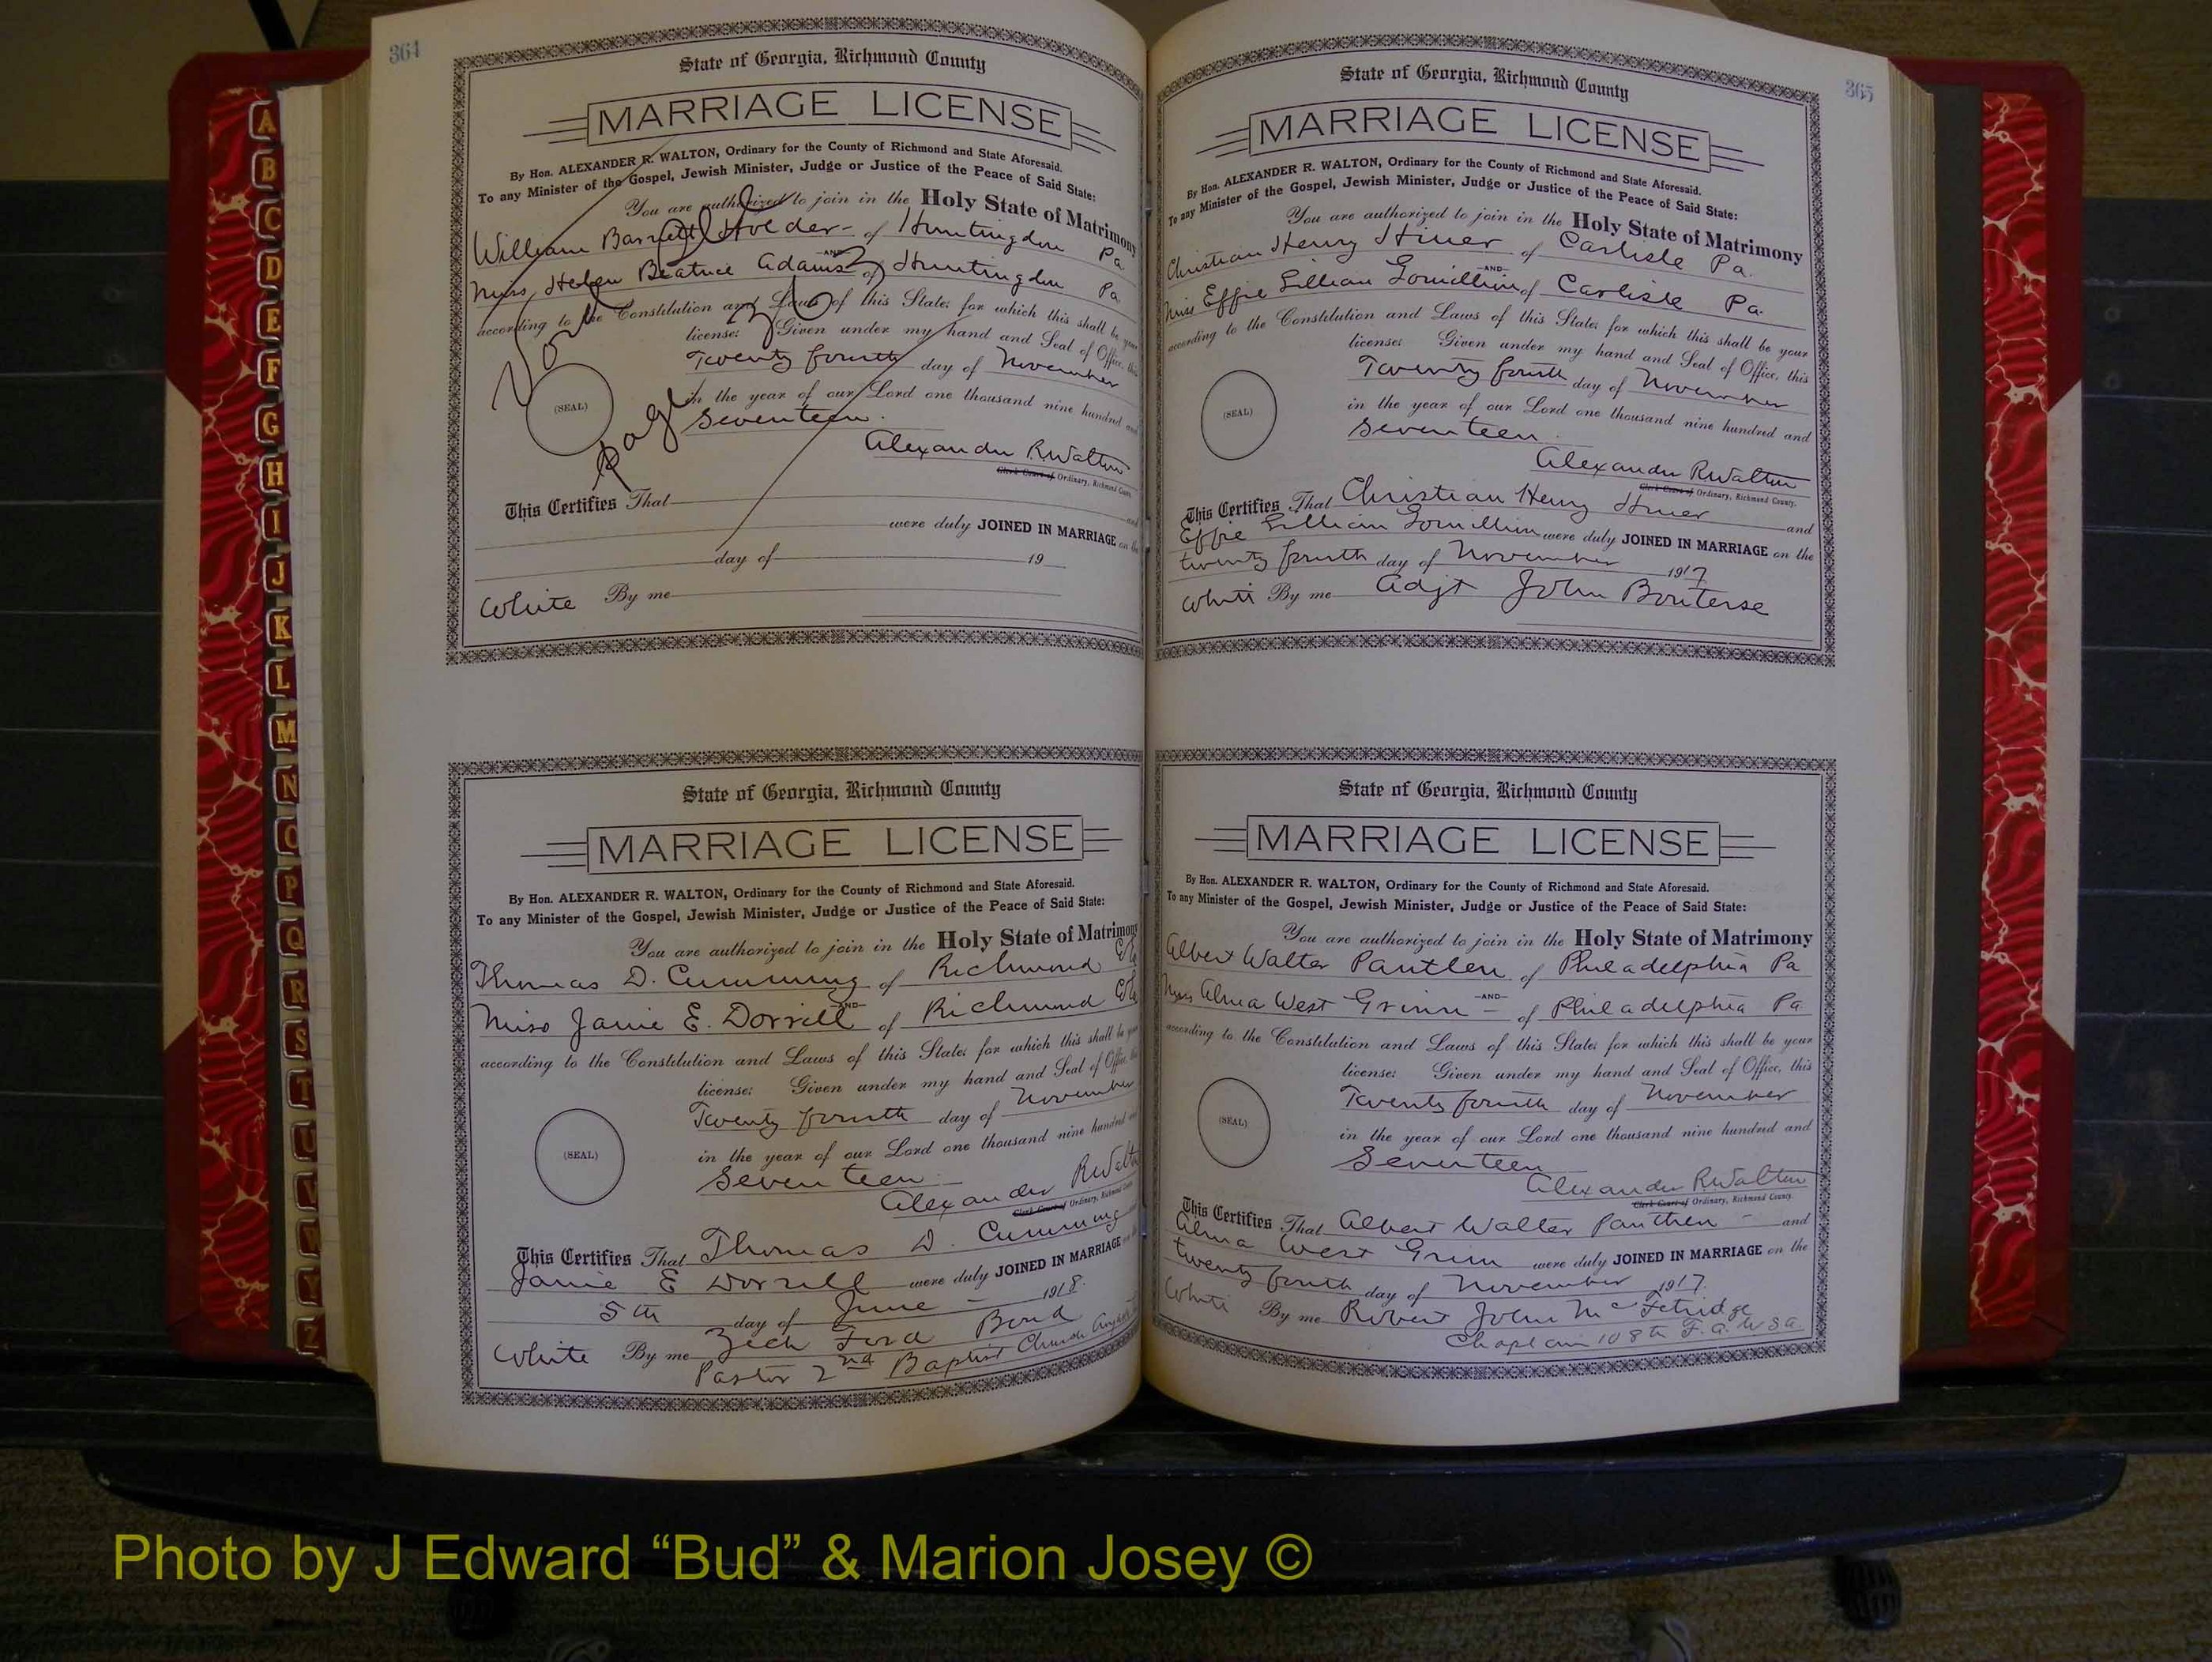 364
State of Georgia, Richmond County
MARRIAGE LICENSE
By Hon. ALEXANDER R. WALTON, Ordinary for the County of Richmond and State Aforesaid.
To any Minister of the Gospel, Jewish Minister, Judge or Justice of the Peace of Said State:
You are authorized to join in the Holy State of Matrimony
William Barnett Holder - of Huntingdon Pa.
AND
Miss Helen Beatrice Adams of Huntingdon Pa
according to the Constitution and Laws of this State; for which this shall be your
license: Given under my hand and Seal of Office, this
Twenty fourth day of November
in the year of our Lord one thousand nine hundred and
Seventeen.
(SEAL)
Alexander R Walton
Clerk Court of Ordinary, Richmond County.
Page
This Certifies That
were duly JOINED IN MARRIAGE on the
day of 19
White By me
State of Georgia, Richmond County
MARRIAGE LICENSE
By Hon. ALEXANDER R. WALTON, Ordinary for the County of Richmond and State Aforesaid.
To any Minister of the Gospel, Jewish Minister, Judge or Justice of the Peace of Said State:
You are authorized to join in the Holy State of Matrimony
Thomas D. Cumming of Richmond Cty
AND
Miss Janie E. Dorrill of Richmond Cty
according to the Constitution and Laws of this State; for which this shall be your
license: Given under my hand and Seal of Office, this
Twenty fourth day of November
in the year of our Lord one thousand nine hundred and
(SEAL)
Seventeen
Alexander R Walton
Clerk Court of Ordinary, Richmond County.
This Certifies That Thomas D. Cumming and
Janie E Dorrill were duly JOINED IN MARRIAGE on the
5th day of June 1918.
White By me Zech Ford Bond
Pastor 2nd Baptist Church Augusta
365
State of Georgia, Richmond County
MARRIAGE LICENSE
By Hon. ALEXANDER R. WALTON, Ordinary for the County of Richmond and State Aforesaid.
To any Minister of the Gospel, Jewish Minister, Judge or Justice of the Peace of Said State:
You are authorized to join in the Holy State of Matrimony
Christian Henry Hiner of Carlisle Pa.
AND
Miss Effie Lillian Gomillion of Carlisle Pa.
according to the Constitution and Laws of this State; for which this shall be your
license: Given under my hand and Seal of Office, this
Twenty fourth day of November
in the year of our Lord one thousand nine hundred and
(SEAL)
Seventeen.
Alexander R Walton
Clerk Court of Ordinary, Richmond County.
This Certifies That Christian Henry Hiner and
Effie Lillian Gomillion were duly JOINED IN MARRIAGE on the
twenty fourth day of November 1917
White By me Adjt John Bouterse
State of Georgia, Richmond County
MARRIAGE LICENSE
By Hon. ALEXANDER R. WALTON, Ordinary for the County of Richmond and State Aforesaid.
To any Minister of the Gospel, Jewish Minister, Judge or Justice of the Peace of Said State:
You are authorized to join in the Holy State of Matrimony
Albert Walter Pantlen of Philadelphia Pa
AND
Miss Alma West Grinn - of Philadelphia Pa
according to the Constitution and Laws of this State; for which this shall be your
license: Given under my hand and Seal of Office, this
Twenty fourth day of November
in the year of our Lord one thousand nine hundred and
(SEAL)
Seventeen
Alexander R Walton
Clerk Court of Ordinary, Richmond County.
This Certifies That Albert Walter Panthen - and
Alma West Grim were duly JOINED IN MARRIAGE on the
twenty fourth day of November 1917.
White By me Robert John McFetridge
Chaplain 108th F.A. U.S.A.
A
B
C
D
E
F
G
H
I
J
K
L
M
N
O
P
Q
R
S
T
U
V
W
Y
Z
Photo by J Edward “Bud” & Marion Josey ©